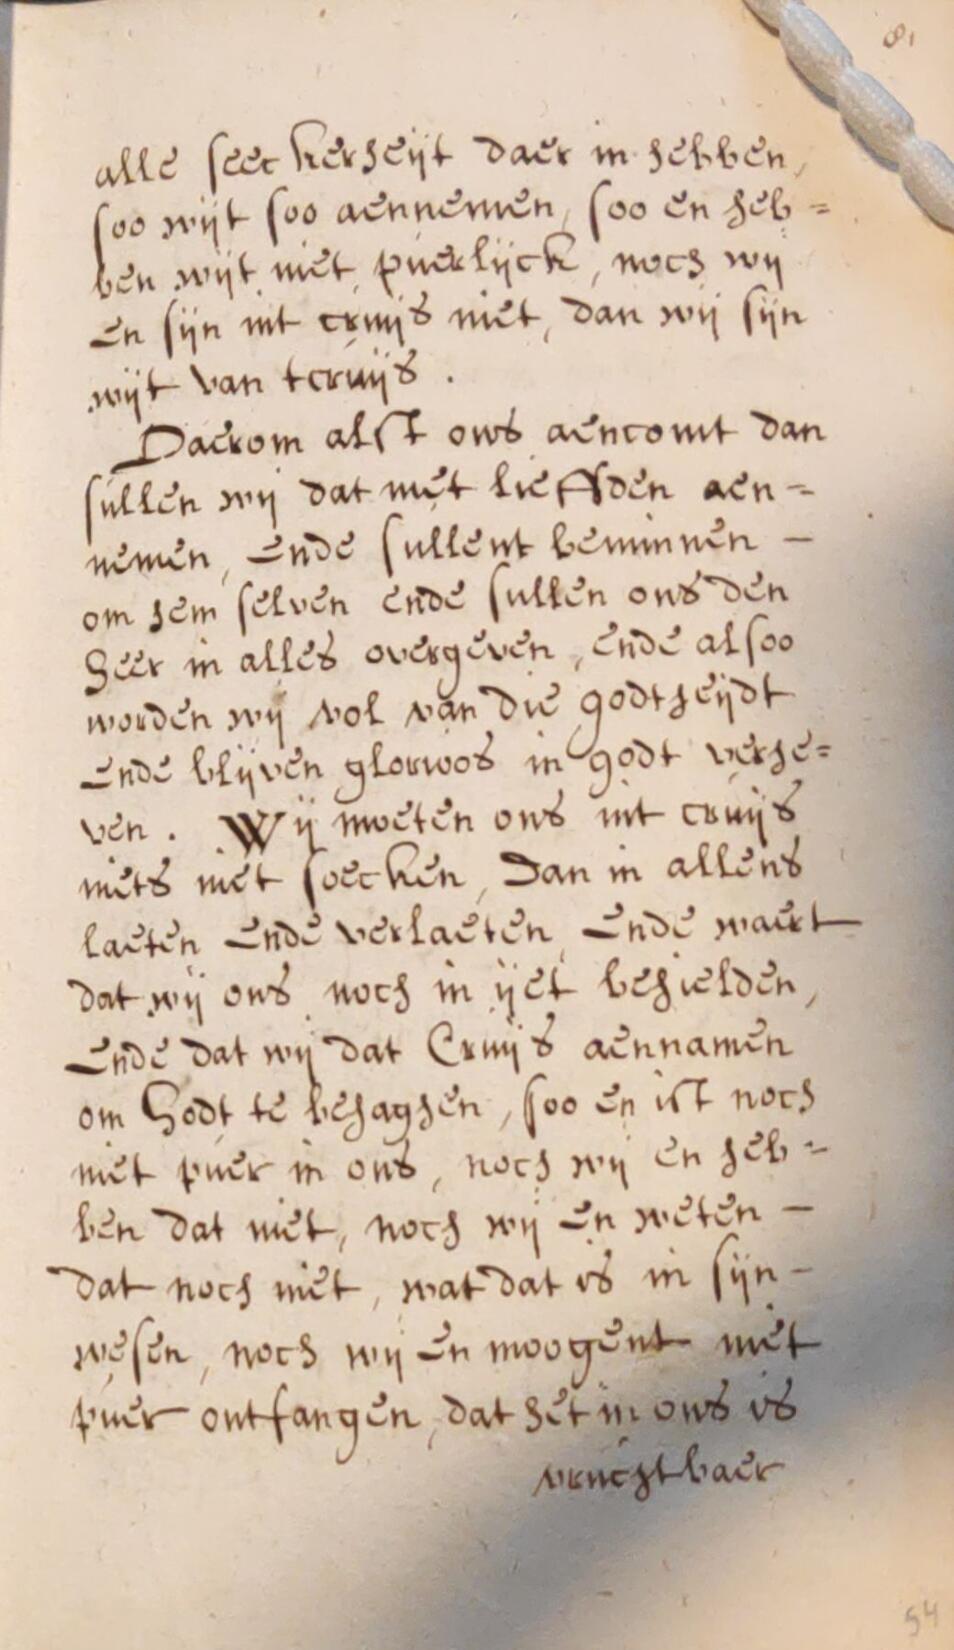 81
alle seeckerheijt daer in hebben,
soo wijt soo aennemen, soo en heb=
ben wijt niet puerlijck, noch wij
en sijn int cruijs niet, dan wij sijn
wijt van tcruijs.
Daerom alst ons aencomt dan
sullen wij dat met lieffden aen=
nemen, ende sullent beminnen –
om hem selven ende sullen ons den
Heer in alles overgeven, ende alsoo
worden wij vol van die godtheijdt
ende blijven glorioos in godt verhe=
ven. Wij moeten ons int cruijs
niets niet soecken, Dan in allens
laeten ende verlaeten, ende waert
dat wij ons noch in ijet behielden,
ende dat wij dat Cruijs aennamen
om Godt te behaghen, soo en ist noch
niet puer in ons, noch wij en heb=
ben dat niet, noch wij en weten –
dat noch niet, wat dat is in sijn –
wesen, noch wij en moogent niet
puer ontfangen, dat het in ons is
vruchtbaer
54